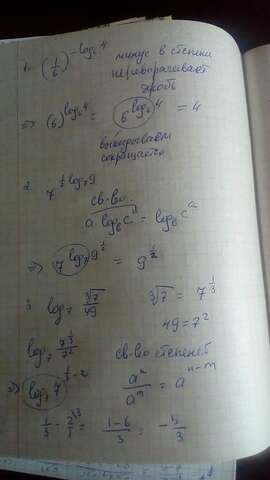 1. (1/6)^(-log₆4) минус в степени
переворачивает
дробь
=> (6)^(log₆4) = 6^(log₆4) = 4
сокращается
2. 7^(½ log₇9)
св-во
a·log_b c = log_b c^a
=> 7^(log₇9^½) = 9^½
3. log₇ ∛7/49 ∛7 = 7^(1/3)
49 = 7²
log₇ 7^(1/3)/7² св-во степеней
=> log₇ 7^(1/3-2) aⁿ/a^m = a^(n-m)
1/3 - 2/1 = 1-6/3 = -5/3